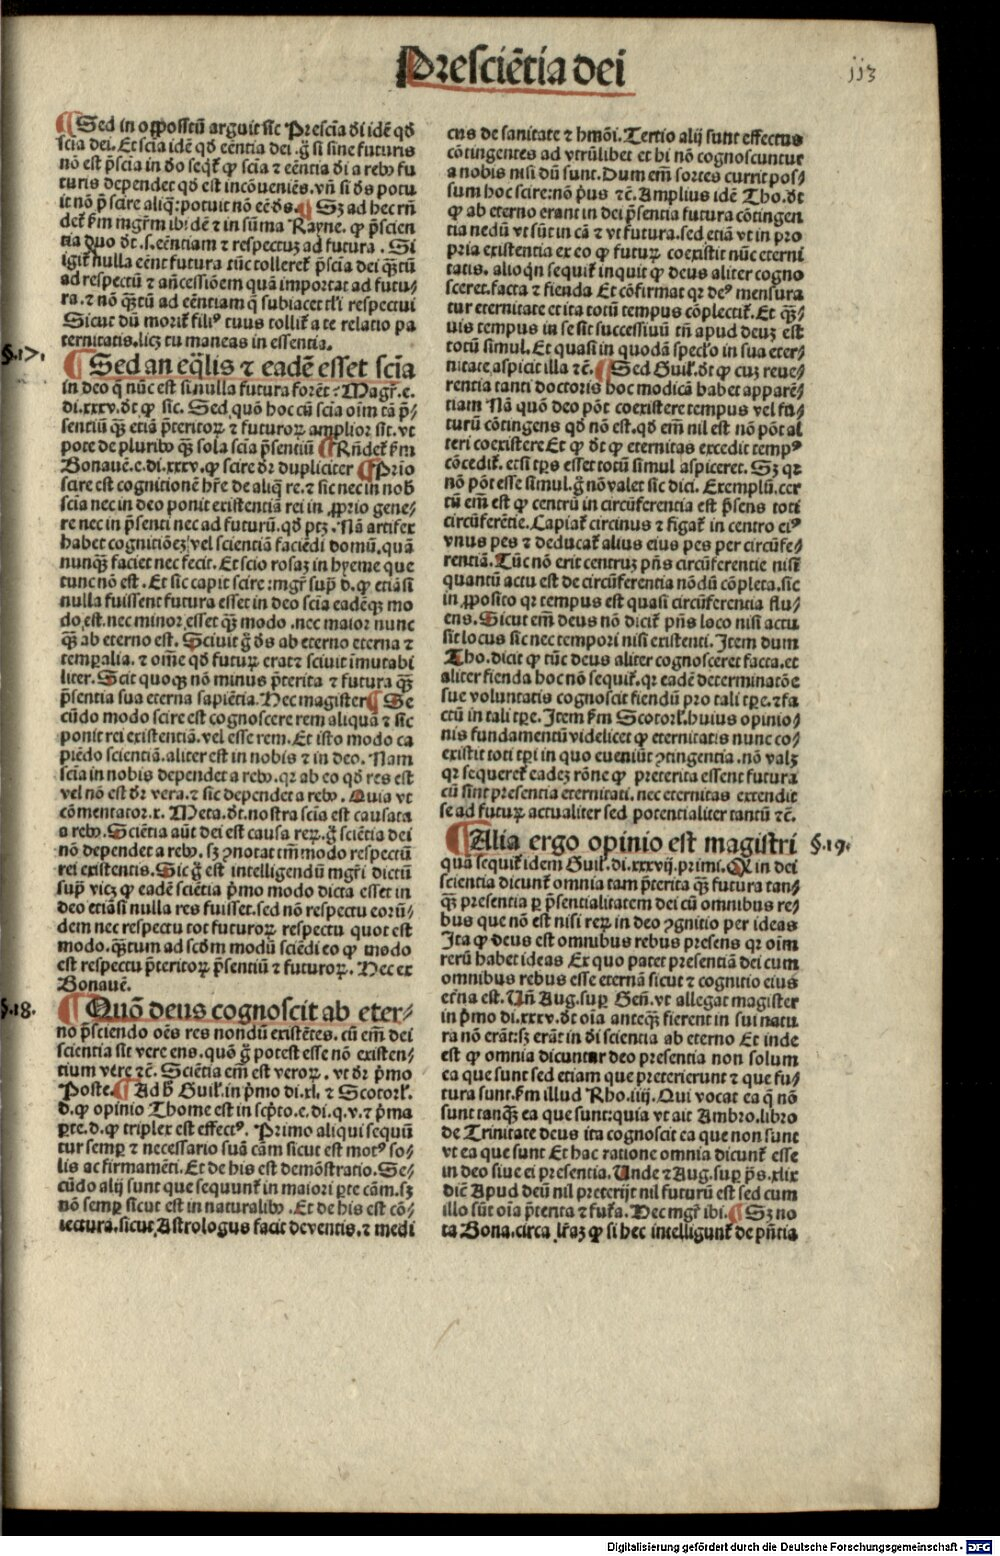 Presciētia dei
113
¶ Sed in oppositū arguit̄ sic Prescia dei idē qd̄
scia dei. Et scia idē qd̄ eēntia dei .g̊ si sine futuris
nō est p̄scia in deo seqt̄ꝛ ꝙ scia ⁊ eēntia dei a rebꝰ fu
turis dependet qd̄ est incōueniēs. vn̄ si ds̄ potu
it nō p̄scire aliq̄: potuit nō eē ds̄. ¶ Sꝫ ad hec rn̄
det̄ ẜm mgr̄m ibidē ⁊ in sūma Rayne. ꝙ p̄scien
tia duo dt̄ .s. eēntiam ⁊ respectuꝫ ad futura . Si
igit̄ nulla eēnt futura tūc tolleret̄ p̄scia dei qꝫtū
ad respectū ⁊ an̄cessiōem quā importat ad futu/
ra. ⁊ nō qꝫtū ad eēntiam q̄ subiacet tl̓i respectui
Sicut dū morit̄ filiꝰ tuus tollit̄ a te relatio pa
ternitatis. licꝫ tu maneas in essentia.
§.17.
¶ Sed an eq̄lis ⁊ eadē esset scīa
in deo q̄ nūc est si nulla futura forēt: Magr̄. e.
di. xxxv. dt̄ ꝙ sic. Sed quō hoc cū scia oīm tā p̄/
sentiū qꝫ etiā p̄teritoꝝ ⁊ futuroꝝ amplior sit. vt
pote de pluribꝰ qꝫ sola scia p̄sentiū ¶ Rn̄det̄ ẜm
Bonauē. e. di. xxxv. ꝙ scire dr̄ dupliciter ¶ Prīo
scire est cognitionē hr̄e de aliq̄ re. ⁊ sic nec in nob̄
scia nec in deo ponit existentiā rei in ꝓprio gene/
re nec in p̄senti nec ad futurū. qd̄ ptꝫ. Nā artifex
habet cognitiōeꝫ vel scientiā faciēdi domū. quā
nunqꝫ faciet nec fecit. Et scio rosaꝫ in hyeme que
tunc nō est . Et sic capit scire : mgr̄ sup̄ d. ꝙ etiā si
nulla fuissent futura esset in deo scia eadēqꝫ mo
do est. nec minor esset qꝫ modo . nec maior nunc
qꝫ ab eterno est. Sciuit g̊ ds̄ ab eterno eterna ⁊
temꝑalia. ⁊ om̄e qd̄ futuꝝ erat ⁊ sciuit īmutabi
liter. Scit quoqꝫ nō minus p̄terita ⁊ futura qꝫ
p̄sentia sua eterna sapiētia. Hec magister ¶ Se
cūdo modo scire est cognoscere rem aliquā ⁊ sic
ponit rei existentiā. vel esse rem. Et isto modo ca
piēdo scientiā. aliter est in nobis ⁊ in deo. Nam
scia in nobis dependet a rebꝰ. qꝛ ab eo qd̄ res est
vel nō est dr̄ vera. ⁊ sic dependet a rebꝰ . Quia vt
cōmentator. x. Meta. dt̄. nostra scia est causata
a rebꝰ. Sciētia aūt dei est causa reꝝ. g̊ sciētia dei
nō dependet a rebꝰ. sꝫ ꝯnotat tm̄modo respectū
rei existentis. Sic g̊ est intelligendū mgr̄i dictū
sup̄ vicꝫ ꝙ eadē sciētia p̄mo modo dicta esset in
deo etiā si nulla res fuisset. sed nō respectu eorū/
dem nec respectu tot futuroꝝ respectu quot est
modo. qꝫtum ad scd̄m modū sciēdi eo ꝙ modo
est respectu p̄teritoꝝ p̄sentiū ⁊ futuroꝝ. Hec ex
Bonauē.
§.18.
¶ Quō deus cognoscit ab eter/
no p̄sciendo oēs res nondū existētes. cū em̄ dei
scientia sit vere ens. quō g̊ potest esse nō existen/
tium vere ⁊c̄. Sciētia em̄ est veroꝝ . vt dr̄ p̄mo
Poste. ¶ Ad h̄ Guil̓. in p̄mo di. xl. ⁊ Scotorl̓.
d. ꝙ opinio Thome est in scp̄to. e. di. q. v. ⁊ p̄ma
ꝑte. d. ꝙ triplex est effectꝰ. Primo aliqui sequū
tur semꝑ ⁊ necessario suā cām sicut est motꝰ so/
lis ac firmamēti. Et de his est demōstratio. Se/
cūdo alij sunt que sequunt̄ in maiori ꝑte cām. sꝫ
nō semꝑ sicut est in naturalibꝰ . Et de his est cō/
iectura. sicut Astrologus facit de ventis. ⁊ medi
cus de sanitate ⁊ hmōi. Tertio alij sunt effectus
cōtingentes ad vtrūlibet et hi nō cognoscuntur
a nobis nisi dū sunt. Dum em̄ sortes currit pos/
sum hoc scire: nō p̄us ⁊c̄. Amplius idē Tho. dt̄
ꝙ ab eterno erant in dei p̄sentia futura cōtingen
tia nedū vt sūt in cā ⁊ vt futura. sed etiā vt in pro
pria existentia ex eo ꝙ futuꝝ coexistit nūc eterni
tatis. alioqn̄ sequit̄ inquit ꝙ deus aliter cogno
sceret. facta ⁊ fienda Et cōfirmat qꝛ deꝰ mensura
tur eternitate et ita totū tempus cōplectit̄. Et qꝫ/
uis tempus in se sit successiuū tn̄ apud deuꝫ est
totū simul. Et quasi in quodā specl̓o in sua eter/
nitate aspicit illa ⁊c̄. ¶ Sed Guil̓. dt̄ ꝙ cuꝫ reue/
rentia tanti doctoris hoc modicā habet apparē/
tiam Nā quō deo pōt coexistere tempus vel fu/
turū cōtingens qd̄ nō est. qd̄ em̄ nil est nō pōt al
teri coexistere Et ꝙ dt̄ ꝙ eternitas excedit tempꝰ
cōcedit̄. etsi tꝑs esset totū simul aspiceret. Sꝫ qꝛ
nō pōt esse simul. g̊ nō valet sic dici. Exemplū. cer
tū em̄ est ꝙ centrū in circūferentia est p̄sens toti
circūferētie. Capiat̄ circinus ⁊ figat̄ in centro eiꝰ
vnus pes ⁊ deducat̄ alius eius pes per circūfe/
rentiā. Tūc nō erit centruꝫ pn̄s circūferentie nisi
quantū actu est de circūferentia nōdū cōpleta. sic
in ꝓposito qꝛ tempus est quasi circūferentia flu/
ens. Sicut em̄ deus nō dicit̄ pn̄s loco nisi actu
sit locus sic nec tempori nisi existenti. Item dum
Tho. dicit ꝙ tūc deus aliter cognosceret facta. et
aliter fienda hoc nō sequit̄. qꝛ eadē determinatōe
sue voluntatis cognoscit fiendū pro tali tꝑe. ⁊ fa
ctū in tali tꝑe. Item ẜm Scotorl̓. huius opinio/
nis fundamentū videlicet ꝙ eternitatis nunc co/
existit toti tꝑi in quo eueniūt ꝯtingentia. nō valꝫ
qꝛ sequeret̄ eadeꝫ rōne ꝙ preterita essent futura
cū sint presentia eternitati. nec eternitas extendit
se ad futuꝝ actualiter sed potentialiter tantū ⁊c̄.
§.19.
¶ Alia ergo opinio est magistri
quā sequit̄ idem Guil̓. di. xxxvij. primi. Q̄ in dei
scientia dicunt̄ omnia tam p̄terita qꝫ futura tan/
qꝫ presentia ꝑ p̄sentialitatem dei cū omnibus re/
bus que nō est nisi reꝝ in deo ꝯgnitio per ideas
Ita ꝙ deus est omnibus rebus presens qꝛ oīm
rerū habet ideas Ex quo patet presentiā dei cum
omnibus rebus esse eternā sicut ⁊ cognitio eius
et̄rna est. Un̄ Aug. suꝑ Gen̄. vt allegat magister
in p̄mo di. xxxv. dt̄ oīa anteqꝫ fierent in sui natu
ra nō erāt: sꝫ erāt in dei scientia ab eterno Et inde
est ꝙ omnia dicuntur deo presentia non solum
ea que sunt sed etiam que preterierunt ⁊ que fu/
tura sunt. ẜm illud Rho. iiij. Qui vocat ea q̄ nō
sunt tanqꝫ ea que sunt: quia vt ait Ambro. libro
de Trinitate deus ita cognoscit ea que non sunt
vt ea que sunt Et hac ratione omnia dicunt̄ esse
in deo siue ei presentia. Unde ⁊ Aug. suꝑ ps̄. xlix
dic̄ Apud deū nil preterijt nil futurū est sed cum
illo sūt oīa p̄terita ⁊ fut̄a. Hec mgr̄ ibi. ¶ Sꝫ no
ta Bona. circa lr̄aꝫ ꝙ si hec intelligunt̄ de pn̄tia
Digitalisierung gefördert durch die Deutsche Forschungsgemeinschaft - DFG